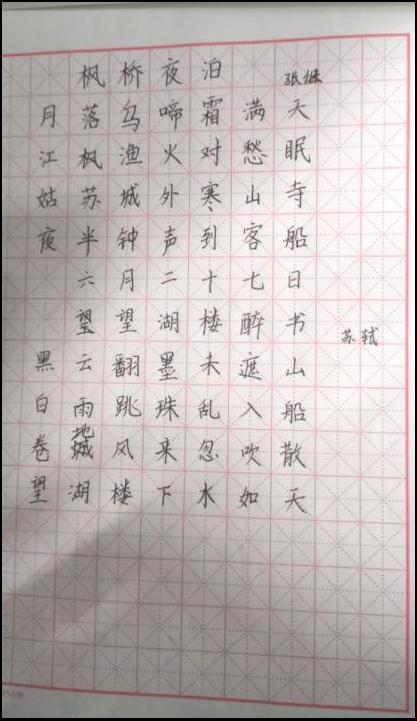 枫桥夜泊 张继
月落乌啼霜满天
江枫渔火对愁眠
姑苏城外寒山寺
夜半钟声到客船
六月二十七日
望望湖楼醉书 苏轼
黑云翻墨未遮山
白雨跳珠乱入船
卷地风来忽吹散
望湖楼下水如天